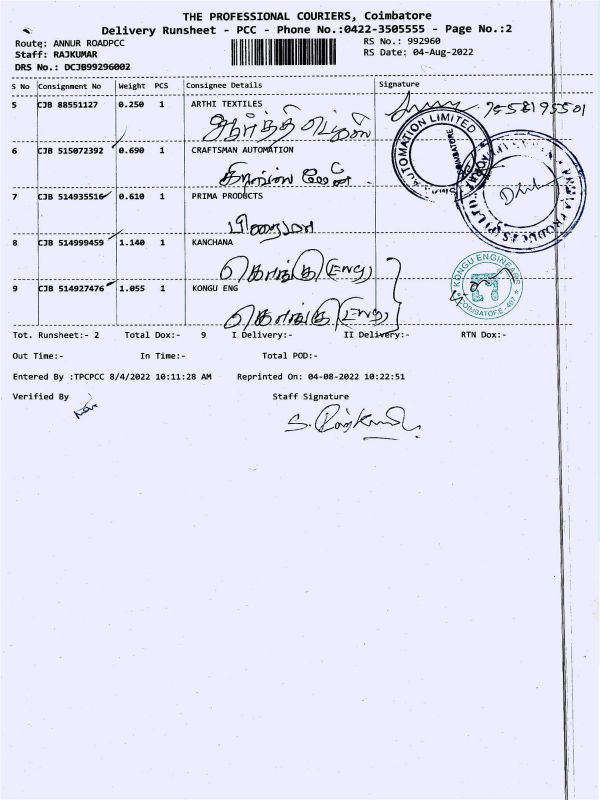 THE PROFESSIONAL COURIERS, Coimbatore
Delivery Runsheet - PCC - Phone No.:0422-3505555 - Page No.:2
Route: ANNUR ROADPCC RS No.: 992960
Staff: RAJKUMAR RS Date: 04-Aug-2022
DRS No.: DCJB99296002
S No Consignment No Weight PCS Consignee Details Signature
5 CJB 88551127 0.250 1 ARTHI TEXTILES
ஆர்த்தி
6 CJB 515072392 0.690 1 CRAFTSMAN AUTOMATION
AUTOMATION LIMITED
7 CJB 514935516 0.610 1 PRIMA PRODUCTS
பிரைமா
PRIMA PRODUCTS (P) LTD
8 CJB 514999459 1.140 1 KANCHANA
கொங்கு (Eng)
KONGU ENGINEERS
COIMBATORE
9 CJB 514927476 1.055 1 KONGU ENG
கொங்கு (Eng)
Tot. Runsheet:- 2 Total Dox:- 9 I Delivery:- II Delivery:- RTN Dox:-
Out Time:- In Time:- Total POD:-
Entered By :TPCPCC 8/4/2022 10:11:28 AM Reprinted On: 04-08-2022 10:22:51
Verified By Staff Signature
S. Rajkumar